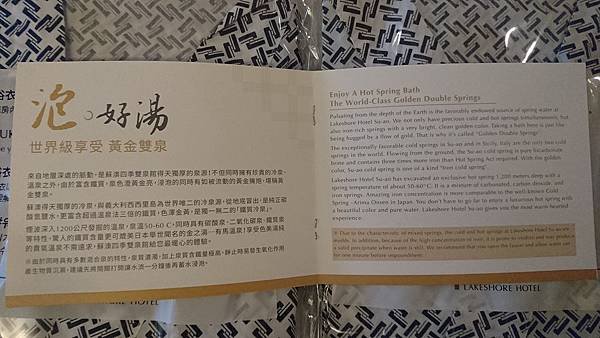 泡。好湯
世界級享受 黃金雙泉
來自地層深處的脈動，是蘇澳四季雙泉館得天獨厚的泉源！不但同時擁有珍貴的冷泉、
溫泉之外，由於富含鐵質，泉色澄黃金亮，浸泡的同時有如被流動的黃金擁抱，堪稱黃
金雙泉。
蘇澳得天獨厚的冷泉，與義大利西西里島為世界唯二的冷泉源，從地底冒出，是純正碳
酸氫鹽水，更富含超過溫泉法三倍的鐵質，色澤金黃，是獨一無二的「鐵質冷泉」。
煙波深入1200公尺發掘的溫泉，泉溫50-60 C，同時具有碳酸泉、二氧化碳泉、鐵質泉
等特性，驚人的鐵質含量更可媲美日本舉世聞名的金之湯－有馬溫泉！享受色美湯純
的貴氣溫泉不需遠求，蘇澳四季雙泉館給您最暖心的體驗。
※由於同時具有多數混合泉的特性，泉質濃濁，加上泉質含鐵量極高，靜止時易發生氧化作用
產生物質沉澱，建議先將開關打開讓水流一分鐘後再蓄水浸泡。
Enjoy A Hot Spring Bath
The World-Class Golden Double Springs
Pulsating from the depth of the Earth is the favorably endowed source of spring water at
Lakeshore Hotel Su-ao. We not only have precious cold and hot springs simultaneously, but
also iron-rich springs with a very bright, clean golden color. Taking a bath here is just like
being hugged by a flow of gold. That is why it's called "Golden Double Springs"
The exceptionally favorable cold springs in Su-ao and in Sicily, Italy are the only two cold
springs in the world. Flowing from the ground, the Su-ao cold spring is pure bicarbonate
brine and contains three times more iron than Hot Spring Act required. With the golden
color, Su-ao cold spring is one of a kind "Iron cold spring".
Lakeshore Hotel Su-ao has excavated an exclusive hot spring 1,200 meters deep with a
spring temperature of about 50-60° C. It is a mixture of carbonated, carbon dioxide, and
iron springs. Amazing iron concentration is more comparable to the well-known Gold
Spring -Arima Onsen in Japan. You don't have to go far to enjoy a luxurious hot spring with
a beautiful color and pure water. Lakeshore Hotel Su-ao gives you the most warm-hearted
experience.
※ Due to the characteristic of mixed springs, the cold and hot springs at Lakeshore Hotel Su-ao are
In addition, because of the high concentration of iron, it is prone to oxidize and may produce
a solid precipitate when water is still. We recommend that you open the faucet and allow water run
for one minute before impoundment.
LAKESHORE HOTEL
LAKESHORE HOTEL